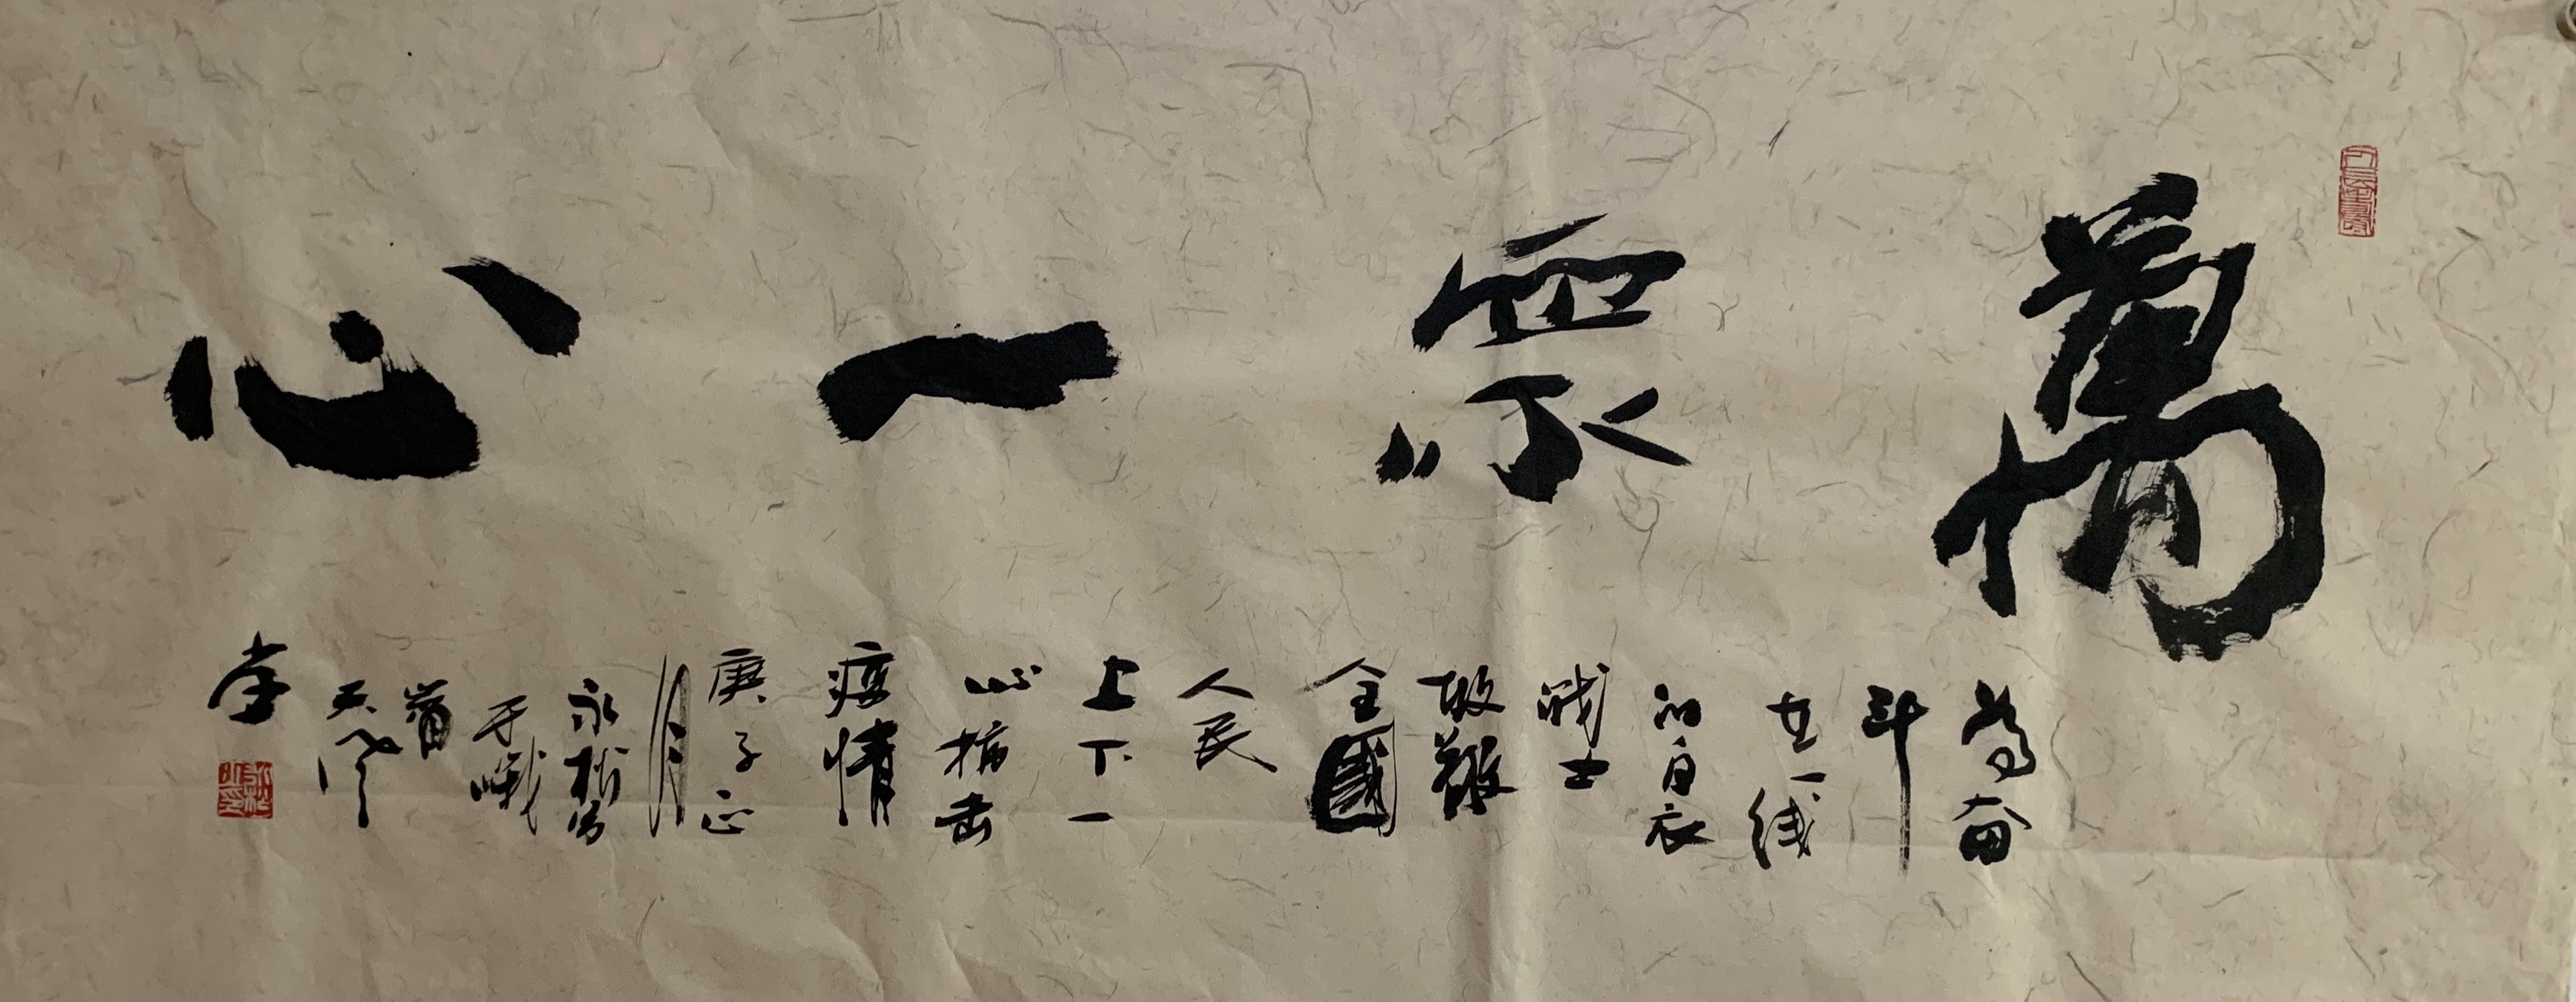 萬眾一心
為奋
斗
在一线
的白衣
战士
致敬
全國
人民
上下一
心抗击
疫情
庚子正
月
永松书
于峨
眉